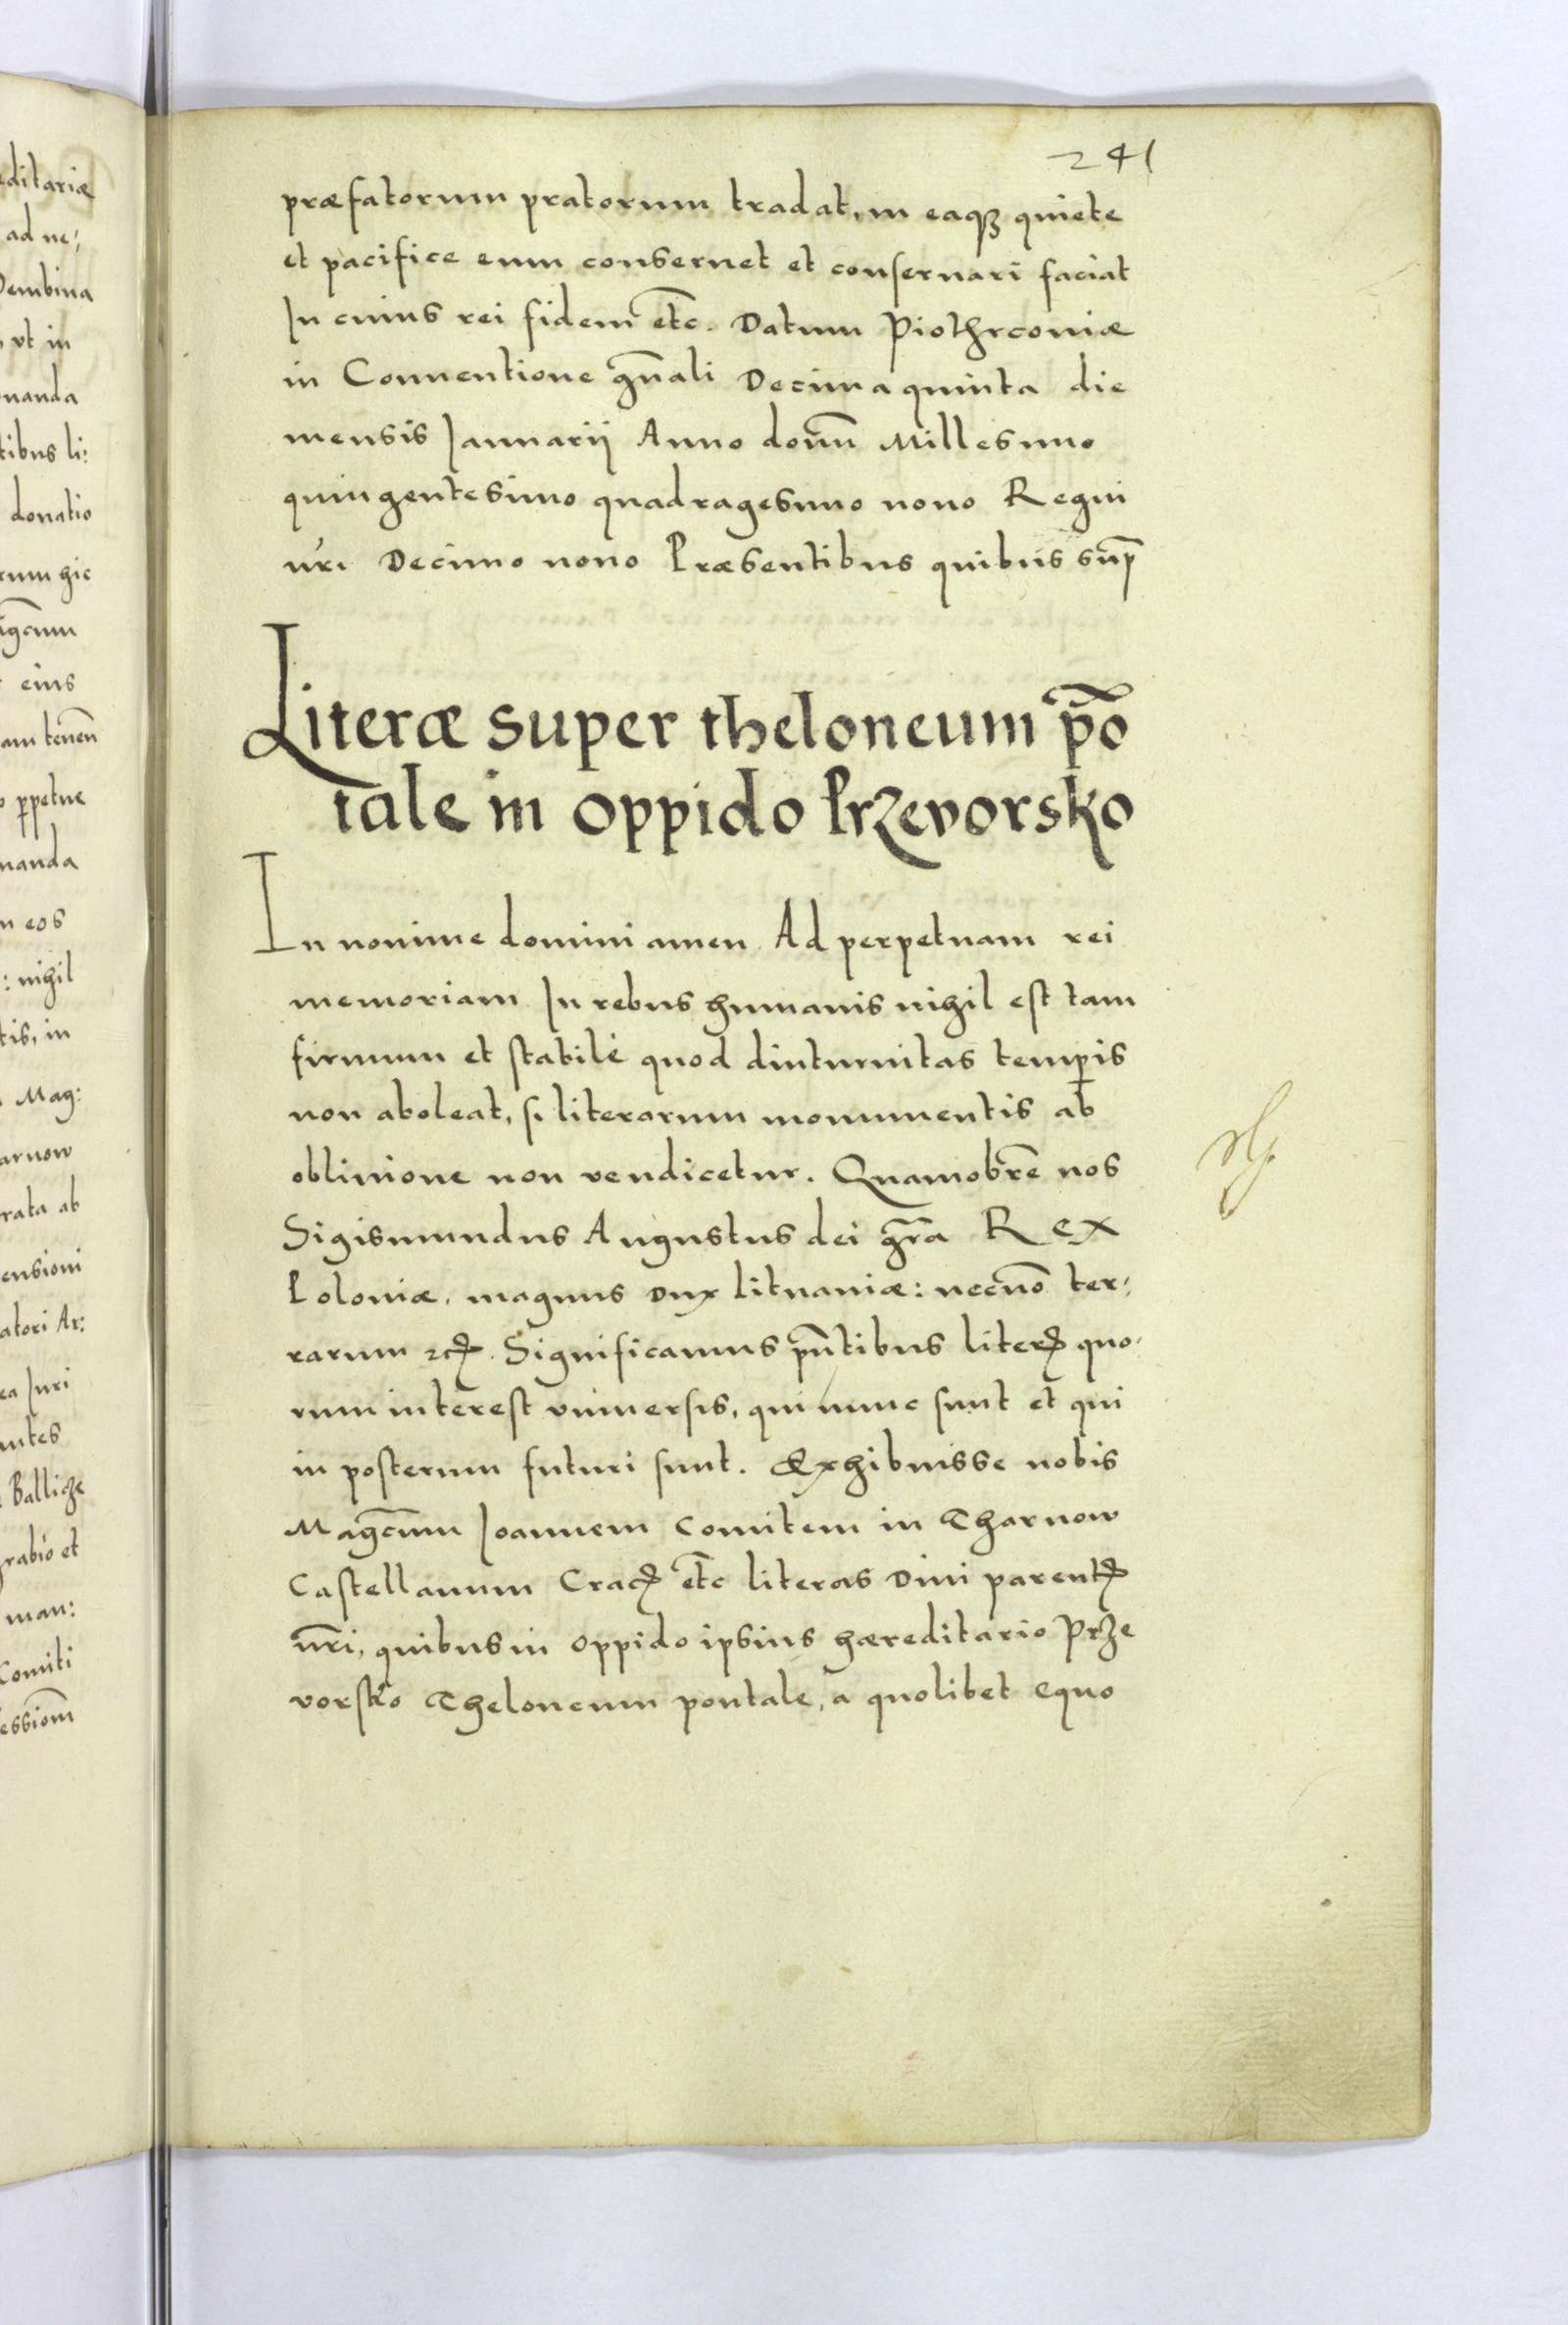 241
præfatorum pratorum tradat, in eaqꝫ quiete
et pacifice eum conservet et conservari faciat
In cuius rei fidem etc̃. Datum Piothrconiæ
in Conventione gn̄ali Decima quinta die
mensis Ianuarii Anno domī Millesimo
quingentesimo quadragesimo nono Regni
nr̃i Decimo nono Præsentibus quibus sup̄
Literæ super theloneum põ
tale in oppido Przevorsko
In nomine domini amen Ad perpetuam rei
memoriam In rebus humanis nihil est tam
firmum et stabile quod diuturnitas temp̱is
non aboleat, si literarum monumentis ab
oblivione non vendicetur. Quamobrē nos
Sigismundus Augustus dei gr̃a Rex
Poloniæ, magnus Dux Lituaniæ: necnō ter-
rarum ꝛcꝝ. Significamus pn̄tibus literꝝ quo-
rum interest universis, qui nunc sunt et qui
in posterum futuri sunt. Exhibuisse nobis
Magc̄um Ioannem Comitem in Tharnow
Castellanum Cracꝝ etc̃ literas Divi parentꝝ
nr̃i, quibus in oppido ipsius hæreditario Prze
vorsko Theloneum pontale, a quolibet equo
editariæ
ad ne:
Dembina
vt in
nanda
tibus li:
donatio
rum hic
eius
am tenen̄
ꝑpetue
nanda
n eos
: nihil
tis, in
Mag:
arnow
rata ab
ensioni
atori Ar:
ea Iuri
ntes
Balliche
et
man:
Comiti
essionē